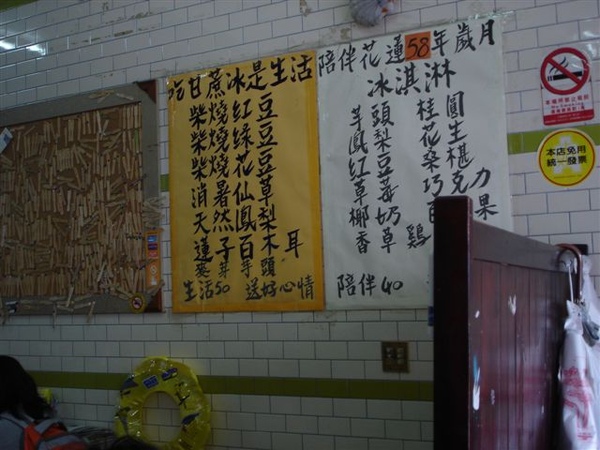 吃甘蔗冰是生活
柴燒紅豆
柴燒綠豆
柴燒花豆
消暑仙草
天然鳳梨
蓮子百木耳
芋頭
生活50 送好心情
陪伴花蓮58年歲月
冰淇淋
芋頭 桂圓
鳳梨 花生
紅豆 桑椹
草莓 巧克力
椰奶 百 果
香草 雞
陪伴40
本場所禁止吸菸
本店免用
統一發票